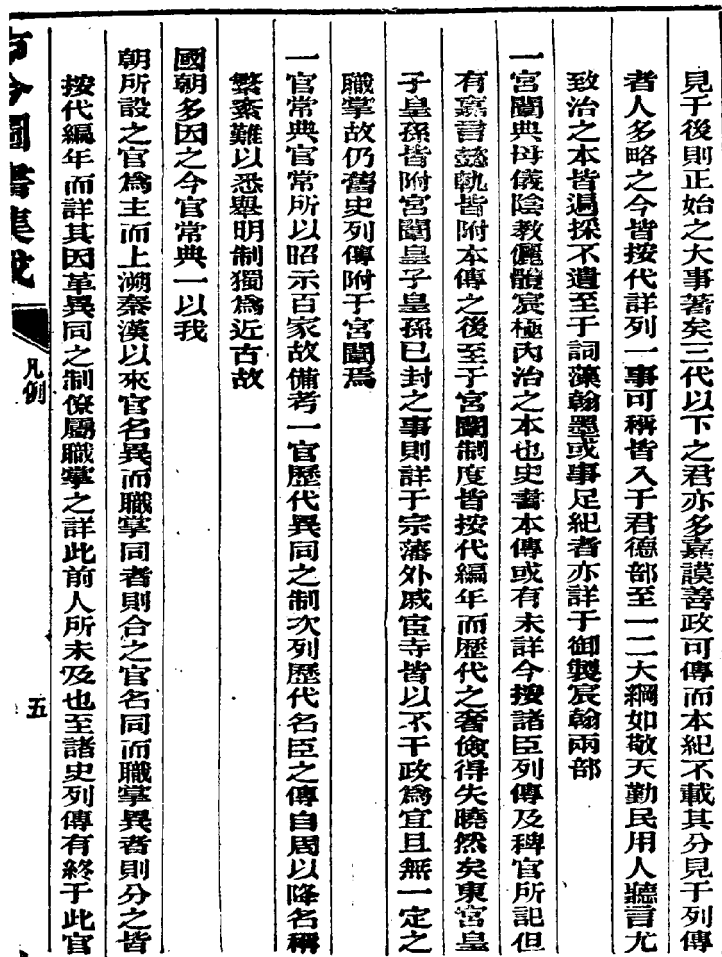 見于後則正始之大事著矣三代以下之君亦多嘉謨善政可傳而本紀不載其分見于列傳
者人多略之今皆按代詳列一事可稱皆入于君德部至一二大綱如敬天勤民用人聽言尤
致治之本皆遍採不遺至于詞藻翰墨或事足紀者亦詳于御製宸翰兩部
一宮闈典母儀陰教儷體宸極內治之本也史書本傳或有未詳今按諸臣列傳及稗官所記但
有嘉言懿軌皆附本傳之後至于宮闈制度皆按代編年而歷代之奢儉得失曉然矣東宮皇
子皇孫皆附宮闈皇子皇孫已封之事則詳于宗藩外戚宦寺皆以不干政為宜且無一定之
職掌故仍舊史列傳附于宮闈焉
一官常典官常所以昭示百家故備考一官歷代異同之制次列歷代名臣之傳自周以降名稱
繁紊難以悉舉明制獨為近古故
國朝多因之今官常典一以我
朝所設之官為主而上溯秦漢以來官名異而職掌同者則合之官名同而職掌異者則分之皆
按代編年而詳其因革異同之制僚屬職掌之詳此前人所未及也至諸史列傳有終于此官
古今圖書集成
凡例
五